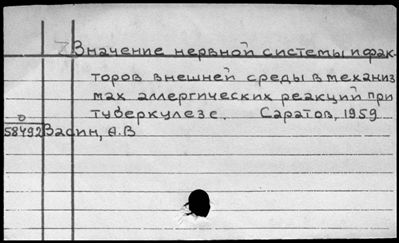 Значение нервной системы и фак-
торов внешней среды в механиз
мах аллергических реакций при
туберкулезе. Саратов, 1959
О
58492 Васин, А.В